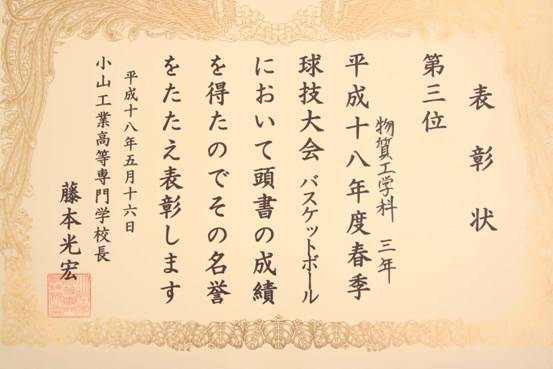 表彰状
第三位
物質工学科 三年
平成十八年度春季
球技大会 バスケットボール
において頭書の成績
を得たのでその名誉
をたたえ表彰します
平成十八年五月十六日
小山工業高等専門学校長
藤本光宏